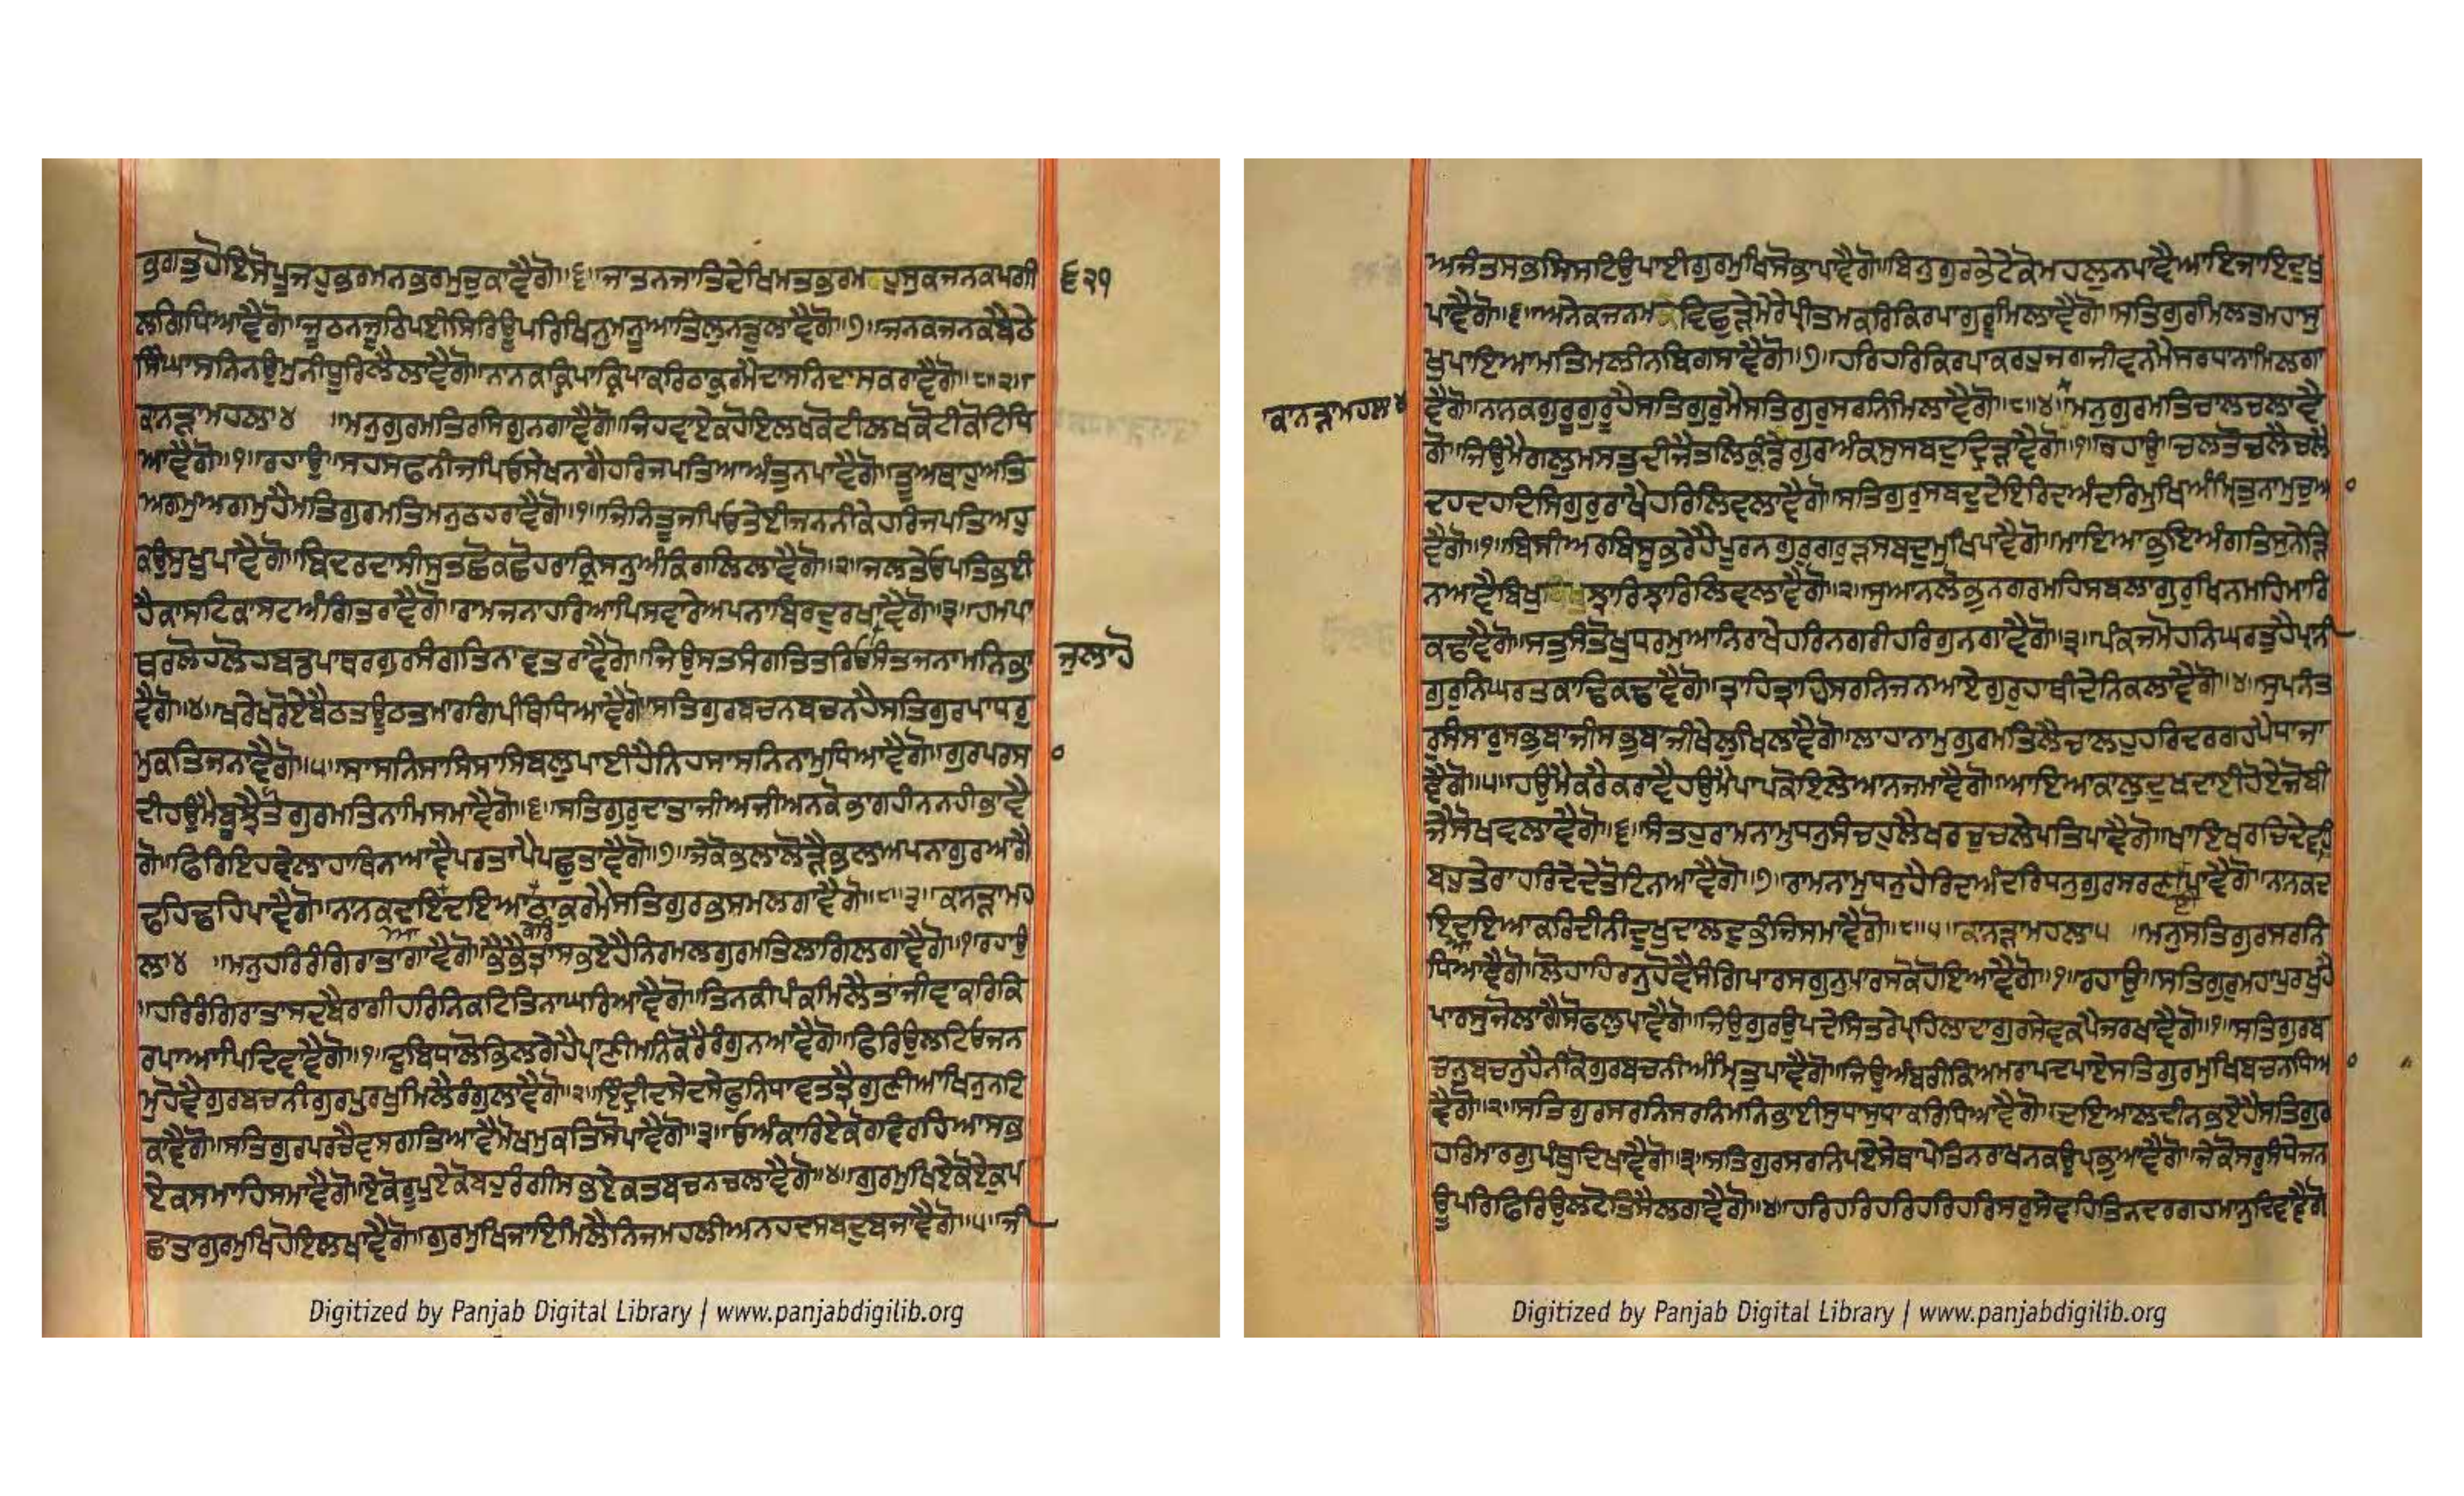 ਭਗਤੁਹੋਇਸੋਪੂਜਹੁਭਰਮਨਭਰਮੁਚੁਕਾਵੈਗੋ॥੬॥ਜਾਤਨਜਾਤਿਦੇਖਿਮਤਭਰਮਹੁਸੁਕਜਨਕਪਗੀ ੬੨੧
ਲਗਿਧਿਆਵੈਗੋ॥ਜੂਠਨਜੂਠਿਪਈਸਿਰਿਊਪਰਿਖਿਨੁਮਨੂਆਤਿਲੁਨਡੁਲਾਵੈਗੋ॥੭॥ਜਨਕਜਨਕਬੈਠੇ
ਸਿੰਘਾਸਨਿਨਉਮੁਨੀਧੂਰਿਲੈਲਾਵੈਗੋ॥ਨਾਨਕਕ੍ਰਿਪਾਕ੍ਰਿਪਾਕਰਿਠਾਕੁਰਮੈਦਾਸਨਿਦਾਸਕਰਾਵੈਗੋ॥੮॥੨॥
ਕਾਨੜਾਮਹਲਾ੪ ॥ਮਨੁਗੁਰਮਤਿਰਸਿਗੁਨਗਾਵੈਗੋ॥ਜਿਹਵਾਏਕਹੋਇਲਖਕੋਟੀਲਖਕੋਟੀਕੋਟਿਧਿ
ਆਵੈਗੋ॥੧॥ਰਹਾਉ॥ਸਹਸਫਨੀਜਪਿਓਸੇਖਨਾਗੈਹਰਿਜਪਤਿਆਅੰਤੁਨਪਾਵੈਗੋ॥ਤੂਅਥਾਹੁਅਤਿ
ਅਗਮੁਅਗਮੁਹੈਮਤਿਗੁਰਮਤਿਮਨੁਠਹਰਾਵੈਗੋ॥੧॥ਜਿਨਿਤੂਜਪਿਓਤੇਈਜਨਨੀਕੇਹਰਿਜਪਤਿਅਹੁ
ਕਉਸੁਖੁਪਾਵੈਗੋ॥ਬਿਦਰਦਾਸੀਸੁਤਛੋਕਛੋਹਰਾਕ੍ਰਿਸਨੁਅੰਕਿਗਲਿਲਾਵੈਗੋ॥੨॥ਜਲਤੇਓਪਤਿਭਈ
ਹੈਕਾਸਟਿਕਾਸਟਅੰਗਿਤਰਾਵੈਗੋ॥ਰਾਮਜਨਾਹਰਿਆਪਿਸਵਾਰੇਅਪਨਾਬਿਰਦੁਰਖਾਵੈਗੋ॥੩॥ਹਮਪਾ
ਥਰਲੋਹਲੋਹਬਡਪਾਥਰਗੁਰਸੰਗਤਿਨਾਵਤਰਾਵੈਗੋ॥ਜਿਉਸਤਸੰਗਤਿਤਰਿਓਸੰਤਜਨਾਮਨਿਭਾ ਜੁਲਾਹੋ
ਵੈਗੋ॥੪॥ਖਰੇਖਰੋਏਬੈਠਤਊਠਤਮਾਰਗਿਪੰਥਿਧਿਆਵੈਗੋ॥ਸਤਿਗੁਰਬਚਨਬਚਨਹੈਸਤਿਗੁਰਪਾਧਰੁ
ਮੁਕਤਿਜਨਾਵੈਗੋ॥੫॥ਸਾਸਨਿਸਾਸਿਸਾਸਿਬਲੁਪਾਈਹੈਨਿਹਸਾਸਨਿਨਾਮੁਧਿਆਵੈਗੋ॥ਗੁਰਪਰਸਾ ੦
ਦੀਹਉਮੈਬੂਝੈਤੌਗੁਰਮਤਿਨਾਮਿਸਮਾਵੈਗੋ॥੬॥ਸਤਿਗੁਰੁਦਾਤਾਜੀਅਜੀਅਨਕੋਭਾਗਹੀਨਨਹੀਭਾਵੈ
ਗੋ॥ਫਿਰਿਇਹਵੇਲਾਹਾਥਿਨਆਵੈਪਰਤਾਪੈਪਛੁਤਾਵੈਗੋ॥੭॥ਜੇਕੋਭਲਾਲੋੜੈਭਲਅਪਨਾਗੁਰਆਗੈ
ਢਹਿਢਹਿਪਾਵੈਗੋ॥ਨਾਨਕਦਇਦਇਆਠਾਕੁਰਮੈਸਤਿਗੁਰਭਸਮਲਗਾਵੈਗੋ॥੮॥੩॥ਕਾਨੜਾਮਹ
ਲਾ੪ ॥ਮਨੁਹਰਿਰੰਗਿਰਾਤਾਗਾਵੈਗੋ॥ਭੈਭੈਤ੍ਰਾਸਭਏਹੈਨਿਰਮਲਗੁਰਮਤਿਲਾਗਿਲਗਾਵੈਗੋ॥੧॥ਰਹਾਉ
॥ਹਰਿਰੰਗਿਰਾਤਾਸਦਬੈਰਾਗੀਹਰਿਨਿਕਟਿਤਿਨਾਘਰਿਆਵੈਗੋ॥ਤਿਨਕੀਪੰਕਮਿਲੈਤਾਂਜੀਵਾਕਰਿਕਿ
ਰਪਾਆਪਿਦਿਵਾਵੈਗੋ॥੧॥ਦੁਬਿਧਾਲੋਭਿਲਗੇਹੈਪ੍ਰਾਣੀਮਨਿਕੋਰੈਰੰਗੁਨਆਵੈਗੋ॥ਫਿਰਿਉਲਟਿਓਜਨ
ਮੁਹੋਵੈਗੁਰਬਚਨੀਗੁਰਪੁਰਖੁਮਿਲੈਰੰਗੁਲਾਵੈਗੋ॥੨॥ਇੰਦ੍ਰੀਦਸੇਦਸੇਫੁਨਿਧਾਵਤਤ੍ਰੈਗੁਣੀਆਖਿਨੁਨਟਿ
ਕਾਵੈਗੋ॥ਸਤਿਗੁਰਪਰਚੈਵਸਗਤਿਆਵੈਮੋਖਮੁਕਤਿਸੋਪਾਵੈਗੋ॥੩॥ਓਅੰਕਾਰਿਏਕੋਰਵਿਰਹਿਆਸਭੁ
ਏਕਸਮਾਹਿਸਮਾਵੈਗੋ॥ਏਕੋਰੂਪੁਏਕੋਬਹੁਰੰਗੀਸਭੁਏਕਤੁਬਚਨਚਲਾਵੈਗੋ॥੪॥ਗੁਰਮੁਖਿਏਕੋਏਕੁਪ
ਛਾਤਾਗੁਰਮੁਖਿਹੋਇਲਖਾਵੈਗੋ॥ਗੁਰਮੁਖਿਜਾਇਮਿਲੈਨਿਜਮਹਲੀਅਨਹਦਸਬਦੁਬਜਾਵੈਗੋ॥੫॥ਜੀ
ਅਜੰਤਸਭਸਿਸਟਿਉਪਾਈਗੁਰਮੁਖਿਸੋਭਾਪਾਵੈਗੋ॥ਬਿਨੁਗੁਰਭੇਟੇਕੋਮਹਲੁਨਪਾਵੈਆਇਜਾਇਦੁਖੁ
ਪਾਵੈਗੋ॥੬॥ਅਨੇਕਜਨਮਵਿਛੁੜੇਮੇਰੇਪ੍ਰੀਤਮਕਰਿਕਿਰਪਾਗੁਰੂਮਿਲਾਵੈਗੋ॥ਸਤਿਗੁਰਮਿਲਤਮਹਾਸੁ
ਖੁਪਾਇਆਮਤਿਮਲੀਨਬਿਗਸਾਵੈਗੋ॥੭॥ਹਰਿਹਰਿਕਿਰਪਾਕਰਹੁਜਗਜੀਵਨਮੈਸਰਧਾਨਾਮਿਲਗਾ
ਕਾਨੜਾਮਹਲਾ੪ ਵੈਗੋ॥ਨਾਨਕਗੁਰੂਗੁਰੂਹੈਸਤਿਗੁਰੁਮੈਸਤਿਗੁਰੁਸਰਨਿਮਿਲਾਵੈਗੋ॥੮॥੪॥ਮਨੁਗੁਰਮਤਿਚਾਲਚਲਾਵੈ
ਗੋ॥ਜਿਉਮੈਗਲੁਮਸਤੁਦੀਜੈਤਲਿਕੁੰਡੇਗੁਰਅੰਕਸੁਸਬਦੁਦ੍ਰਿੜਾਵੈਗੋ॥੧॥ਰਹਾਉ॥ਚਲਤੌਚਲੈਚਲੈ
ਦਹਦਹਦਿਸਿਗੁਰੁਰਾਖੈਹਰਿਲਿਵਲਾਵੈਗੋ॥ਸਤਿਗੁਰੁਸਬਦੁਦੇਇਰਿਦਅੰਦਰਿਮੁਖਿਅੰਮ੍ਰਿਤੁਨਾਮੁਚੁਆ ੦
ਵੈਗੋ॥੧॥ਬਿਸੀਅਰਬਿਸੂਭਰੇਹੈਪੂਰਨਗੁਰੁਗਰੁੜਸਬਦੁਮੁਖਿਪਾਵੈਗੋ॥ਮਾਇਆਭੁਇਅੰਗਤਿਸੁਨੇੜਿ
ਨਆਵੈਬਿਖੁਝਾਰਿਝਾਰਿਲਿਵਲਾਵੈਗੋ॥੨॥ਸੁਆਨਲੋਭੁਨਗਰਮਹਿਸਬਲਾਗੁਰੁਖਿਨਮਹਿਮਾਰਿ
ਕਢਾਵੈਗੋ॥ਸਤੁਸੰਤੋਖੁਧਰਮੁਆਨਿਰਾਖੇਹਰਿਨਗਰੀਹਰਿਗੁਨਗਾਵੈਗੋ॥੩॥ਪੰਕਜਮੋਹਨਿਘਰਤੁਹੈਪ੍ਰਾਨੀ
ਗੁਰੁਨਿਘਰਤਕਾਢਿਕਢਾਵੈਗੋ॥ਤ੍ਰਾਹਿਤ੍ਰਾਹਿਸਰਨਿਜਨਆਏਗੁਰੁਹਾਥੀਦੇਨਿਕਲਾਵੈਗੋ॥੪॥ਸੁਪਨੰਤ
ਰੁਸੰਸਾਰੁਸਭੁਬਾਜੀਸਭੁਬਾਜੀਖੇਲੁਖਿਲਾਵੈਗੋ॥ਲਾਹਾਨਾਮੁਗੁਰਮਤਿਲੈਚਾਲਹੁਹਰਿਦਰਗਹਪੈਧਾਜਾ
ਵੈਗੋ॥੫॥ਹਉਮੈਕਰੈਕਰਾਵੈਹਉਮੈਪਾਪਕੋਇਲੇਆਨਜਮਾਵੈਗੋ॥ਆਇਆਕਾਲੁਦੁਖਦਾਈਹੋਏਜੋਬੀ
ਜੈਸੋਖਵਲਾਵੈਗੋ॥੬॥ਸੰਤਹੁਰਾਮਨਾਮੁਧਨੁਸੰਚਹੁਲੈਖਰਚੁਚਲੇਪਤਿਪਾਵੈਗੋ॥ਖਾਇਖਰਚਿਦੇਵਹਿ
ਬਹੁਤੇਰਾਹਰਿਦੇਦੇਤੋਟਿਨਆਵੈਗੋ॥੭॥ਰਾਮਨਾਮੁਧਨੁਹੈਰਿਦਅੰਦਰਿਧਨੁਗੁਰਸਰਣੀਪਾਵੈਗੋ॥ਨਾਨਕਦ
ਇਦਇਆਕਰਿਦੀਨੀਦੁਖੁਦਾਲਦੁਭੰਜਿਸਮਾਵੈਗੋ॥੮॥੫॥ਕਾਨੜਾਮਹਲਾ੫ ॥ਮਨੁਸਤਿਗੁਰਸਰਨਿ
ਧਿਆਵੈਗੋ॥ਲੋਹਾਹਿਰਨੁਹੋਵੈਸੰਗਿਪਾਰਸਗੁਨੁਪਾਰਸਕੋਹੋਇਆਵੈਗੋ॥੧॥ਰਹਾਉ॥ਸਤਿਗੁਰੁਮਹਾਪੁਰਖੁਹੈ
ਪਾਰਸੁਜੋਲਾਗੈਸੋਫਲੁਪਾਵੈਗੋ॥ਜਿਉਗੁਰਉਪਦੇਸਿਤਰੇਪ੍ਰਹਿਲਾਦਾਗੁਰਸੇਵਕਪੈਜਰਖਾਵੈਗੋ॥੧॥ਸਤਿਗੁਰਬ
ਚਨੁਬਚਨੁਹੈਨੀਕੋਗੁਰਬਚਨੀਅੰਮ੍ਰਿਤੁਪਾਵੈਗੋ॥ਜਿਉਅੰਬਰੀਕਿਅਮਰਾਪਦਪਾਏਸਤਿਗੁਰਮੁਖਿਬਚਨਧਿਆ ੦
ਵੈਗੋ॥੨॥ਸਤਿਗੁਰਸਰਨਿਸਰਨਿਮਨਿਭਾਈਸੁਧਾਸੁਧਾਕਰਿਧਿਆਵੈਗੋ॥ਦਇਆਲਦੀਨਭਏਹੈਸਤਿਗੁਰ
ਹਰਿਮਾਰਗੁਪੰਥੁਦਿਖਾਵੈਗੋ॥੩॥ਸਤਿਗੁਰਸਰਨਿਪਏਸੇਥਾਪੇਤਿਨਰਾਖਨਕਉਪ੍ਰਭੁਆਵੈਗੋ॥ਜੇਕੋਸਰੁਸੰਧੈਜਨ
ਊਪਰਿਫਿਰਿਉਲਟੋਤਿਸੈਲਗਾਵੈਗੋ॥੪॥ਹਰਿਹਰਿਹਰਿਹਰਿਹਰਿਸਰੁਸੇਵਹਿਤਿਨਦਰਗਹਮਾਨੁਦਿਵਾਵੈਗੋ
Digitized by Panjab Digital Library | www.panjabdigilib.org
Digitized by Panjab Digital Library | www.panjabdigilib.org